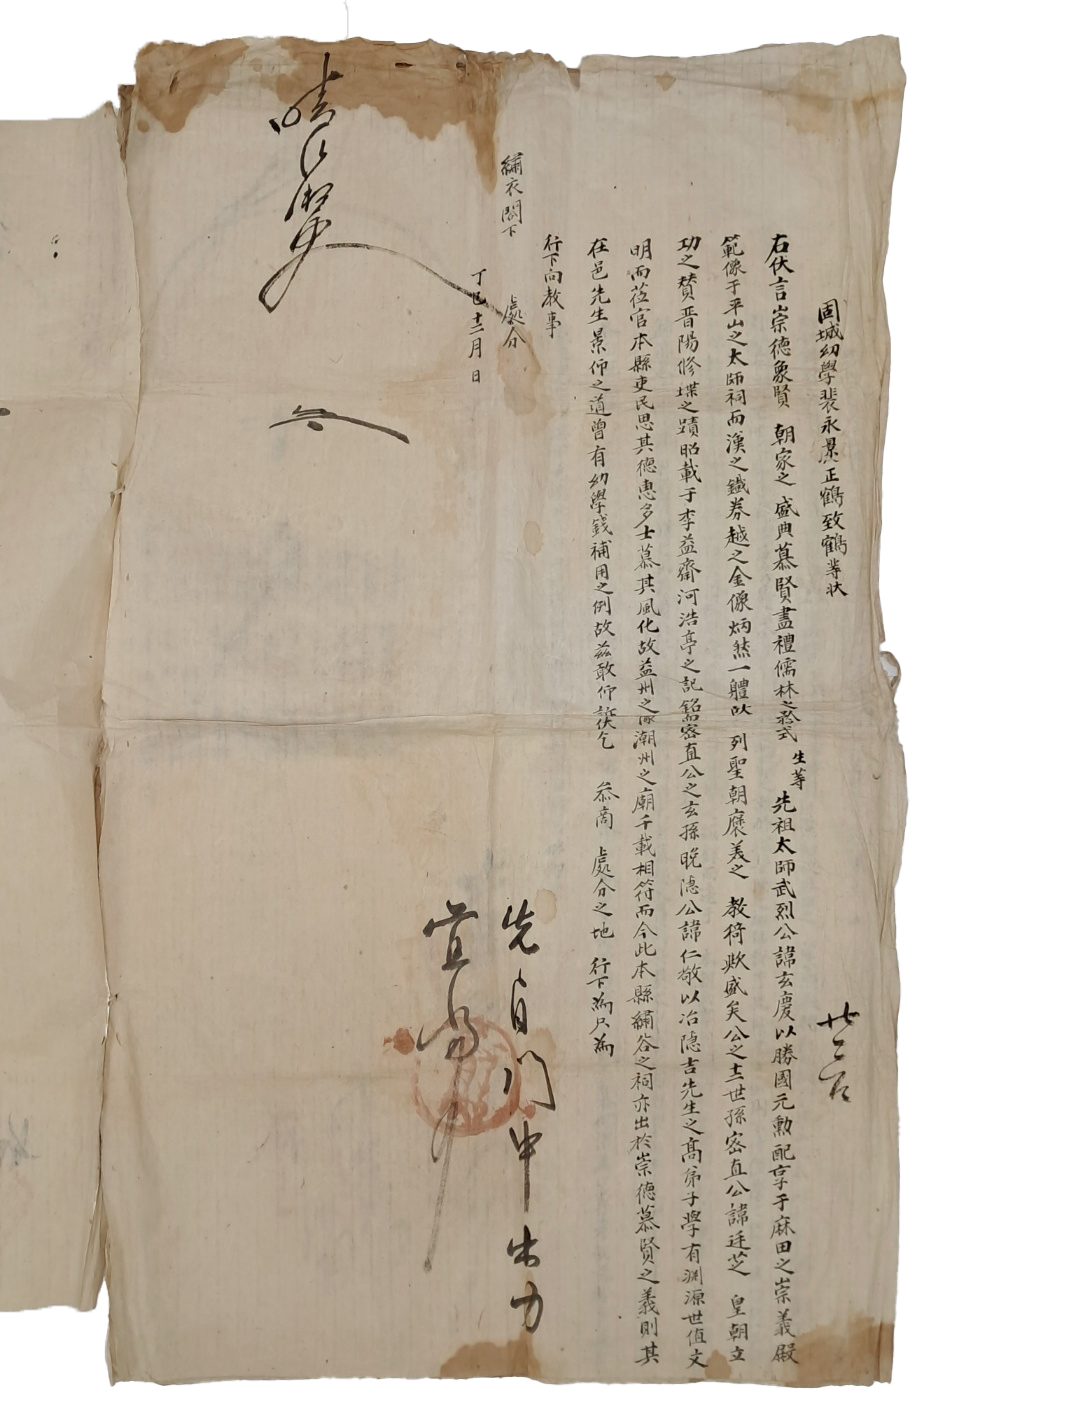 固城幼學裴永㬌正鶴致鶴等狀
右伏言崇德象賢 朝家之 盛典慕賢盡禮儒林之矜式 生等 先祖太師武烈公諱玄慶以勝國元勳配享于麻田之崇義殿
範像于平山之太師祠而漢之鐵券越之金像炳然一軆以 列聖朝褒美之 教猗歟盛矣公之十二世孫密直公諱廷芝 皇朝立
功之贊晋陽修堞之蹟昭載于李益齋河浩亭之記銘密直公之玄孫晚隱公諱仁敬以冶隱吉先生之高弟子學有淵源世值文
明而莅官本縣吏民思其德惠多士慕其風化故益州之像潮州之廟千載相符而今此本縣繡谷之祠亦出於崇德慕賢之義則其
在邑先生景仰之道曾有幼學錢補用之例故玆敢仰訴伏乞 叅商 處分之地 行下爲只爲
行下向敎事
繡衣閤下 處分
丁巳十二月 日
先自門中出力
宜當